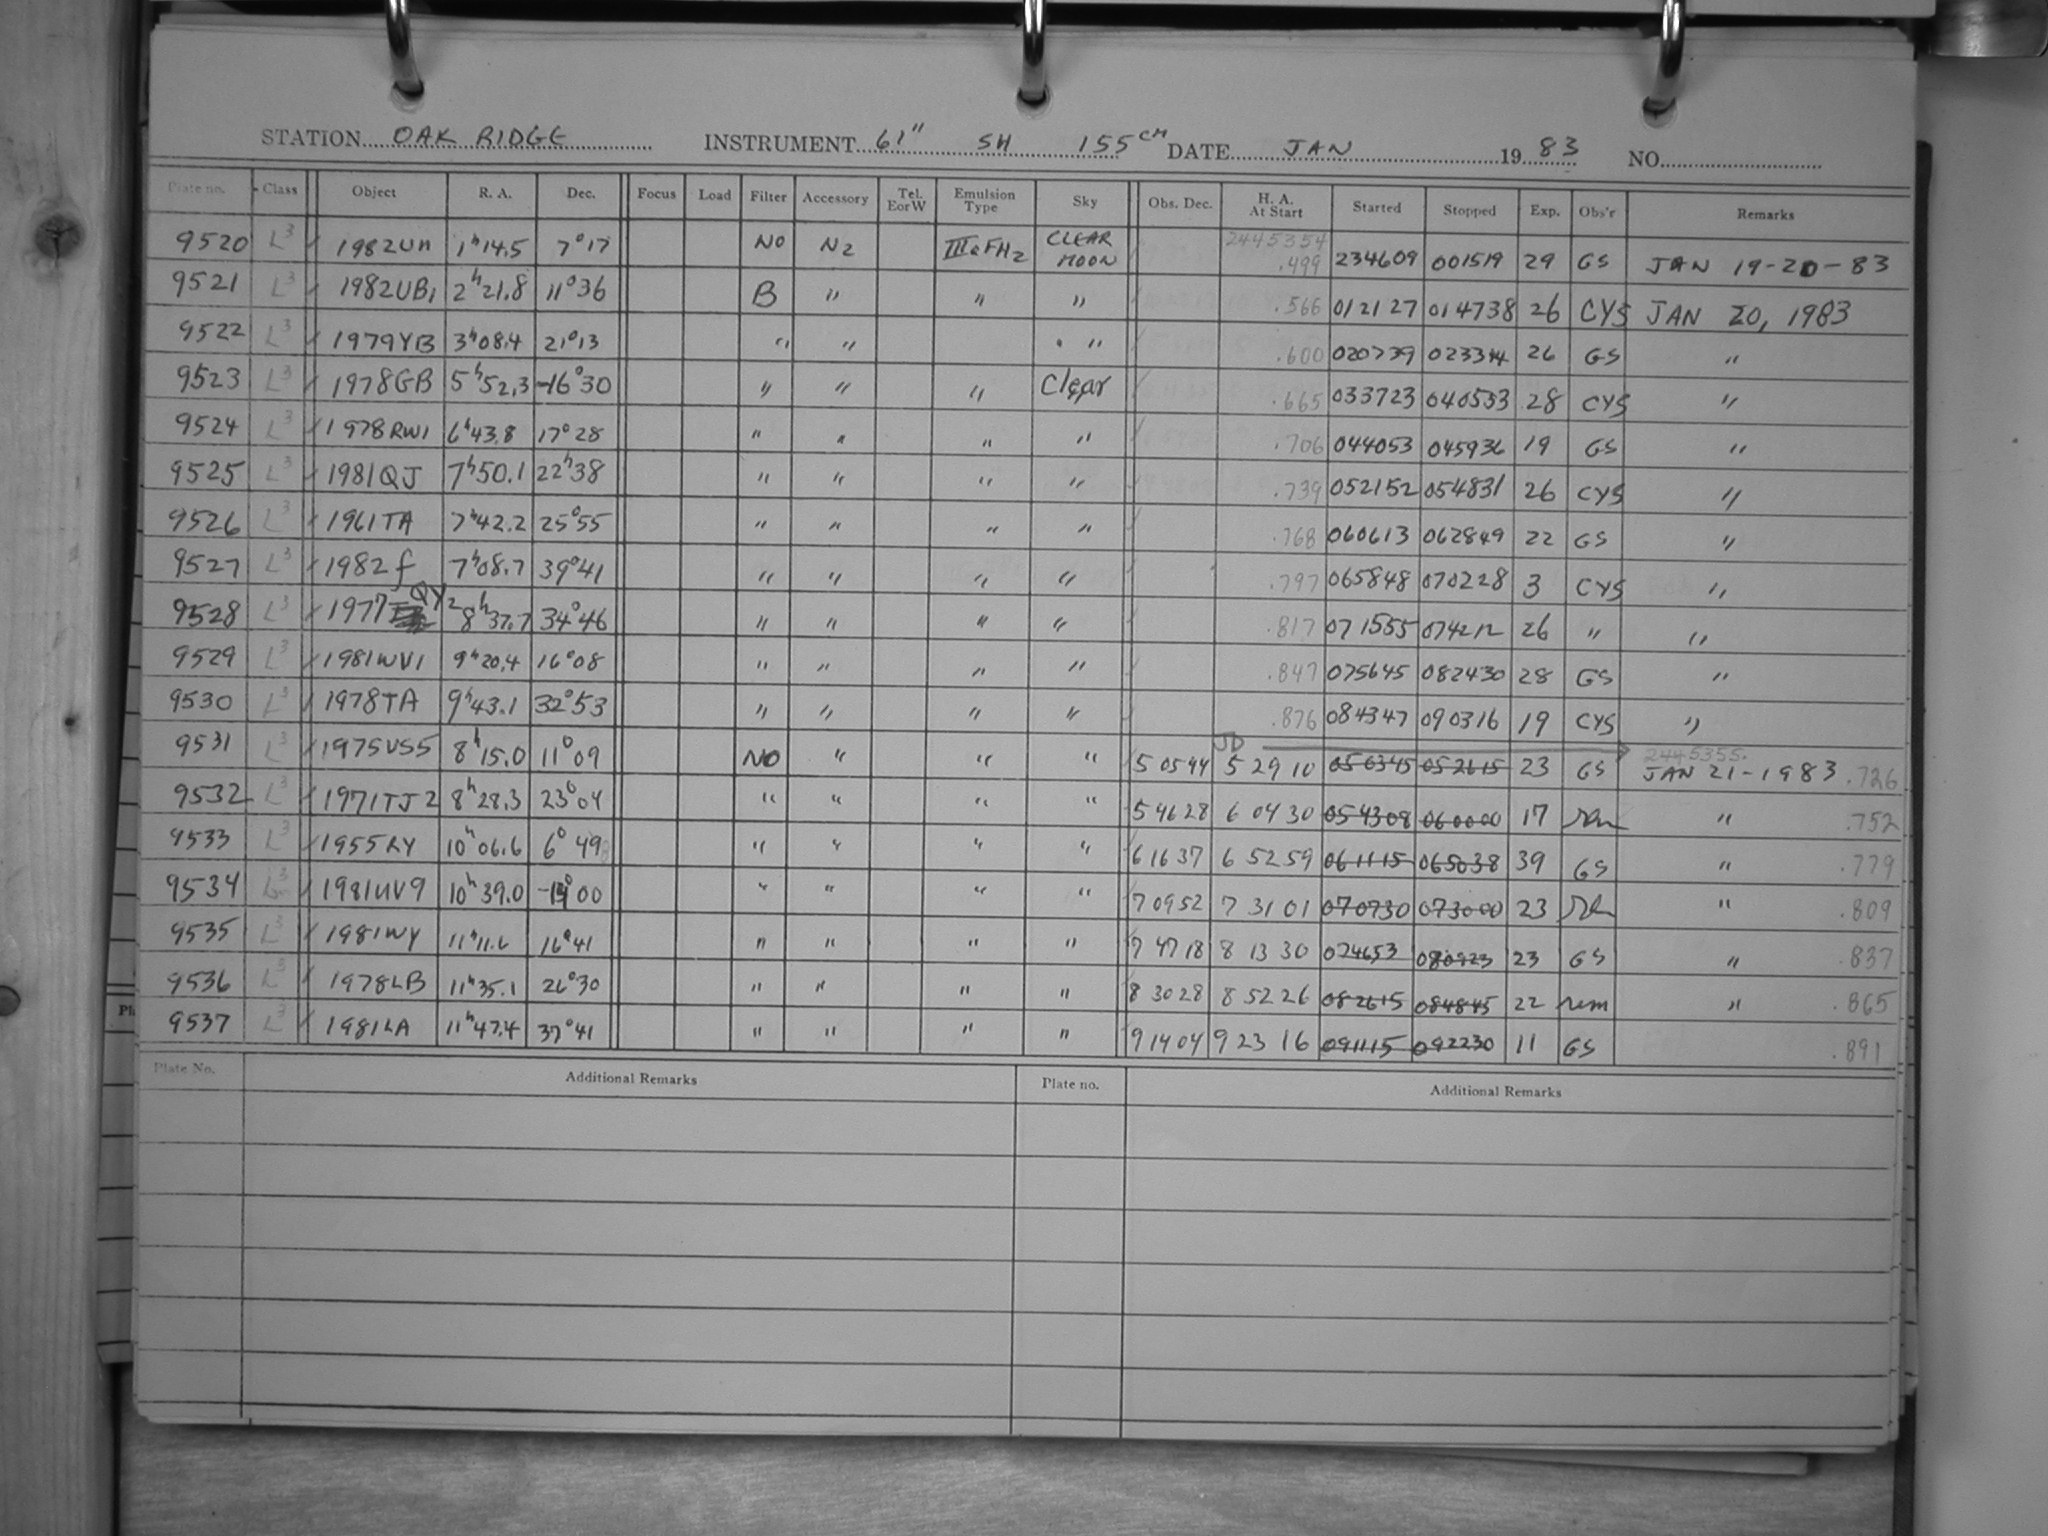 STATION OAK RIDGE INSTRUMENT 61" SH 155 CM DATE JAN 19 83 NO.
Plate no. Class Object R. A. Dec. Focus Load Filter Accessory Tel. E or W Emulsion Type Sky Obs. Dec. H. A. At Start Started Stopped Exp. Obs'r Remarks
9520 L3 1982UH 1h14.5 7°17 NO N2 IIIaFH2 CLEAR MOON 2445354 .499 234609 001519 29 GS JAN 19-20-83
9521 L3 1982UB1 2h21.8 11°36 B " " " .566 012127 014738 26 CYS JAN 20, 1983
9522 L3 1979YB 3h08.4 21°13 " " " .600 020739 023314 26 GS "
9523 L3 1978GB 5h52.3 -16°30 " " " Clear .665 033723 040553 28 CYS "
9524 L3 1978RW1 6h43.8 17°28 " " " " .706 044053 045936 19 GS "
9525 L3 1981QJ 7h50.1 22h38 " " " " .739 052152 054831 26 CYS "
9526 L3 1961TA 7h42.2 25°55 " " " " .768 060613 062849 22 GS "
9527 L3 1982f 7h08.7 39°41 " " " " .797 065848 070228 3 CYS "
9528 L3 1977 QY2 8h37.7 34°46 " " " " .817 071555 074212 26 " "
9529 L3 1981WV1 9h20.4 16°08 " " " " .847 075645 082430 28 GS "
9530 L3 1978TA 9h43.1 32°53 " " " " .876 084347 090316 19 CYS "
9531 L3 1975VS5 8h15.0 11°09 NO " " " 5 05 44 JD 5 29 10 050345 052615 23 GS 2445355. JAN 21-1983 .726
9532 L3 1971TJ2 8h28.3 23°04 " " " " 5 46 28 6 04 30 054308 060000 17 rem " .752
9533 L3 1955RY 10h06.6 6°49 " " " " 6 16 37 6 52 59 061115 065038 39 GS " .779
9534 L3 1981UV9 10h39.0 00 " " " " 7 09 52 7 31 01 070730 073000 23 " .809
9535 L3 1981WY 11h11.6 16°41 " " " " 7 47 18 8 13 30 074653 080923 23 GS " .837
9536 L3 1978LB 11h35.1 26°30 " " " " 8 30 28 8 52 26 082615 084845 22 rem " .865
9537 L3 1981LA 11h47.4 37°41 " " " " 9 14 04 9 23 16 091115 092230 11 GS .891
Plate No. Additional Remarks Plate no. Additional Remarks